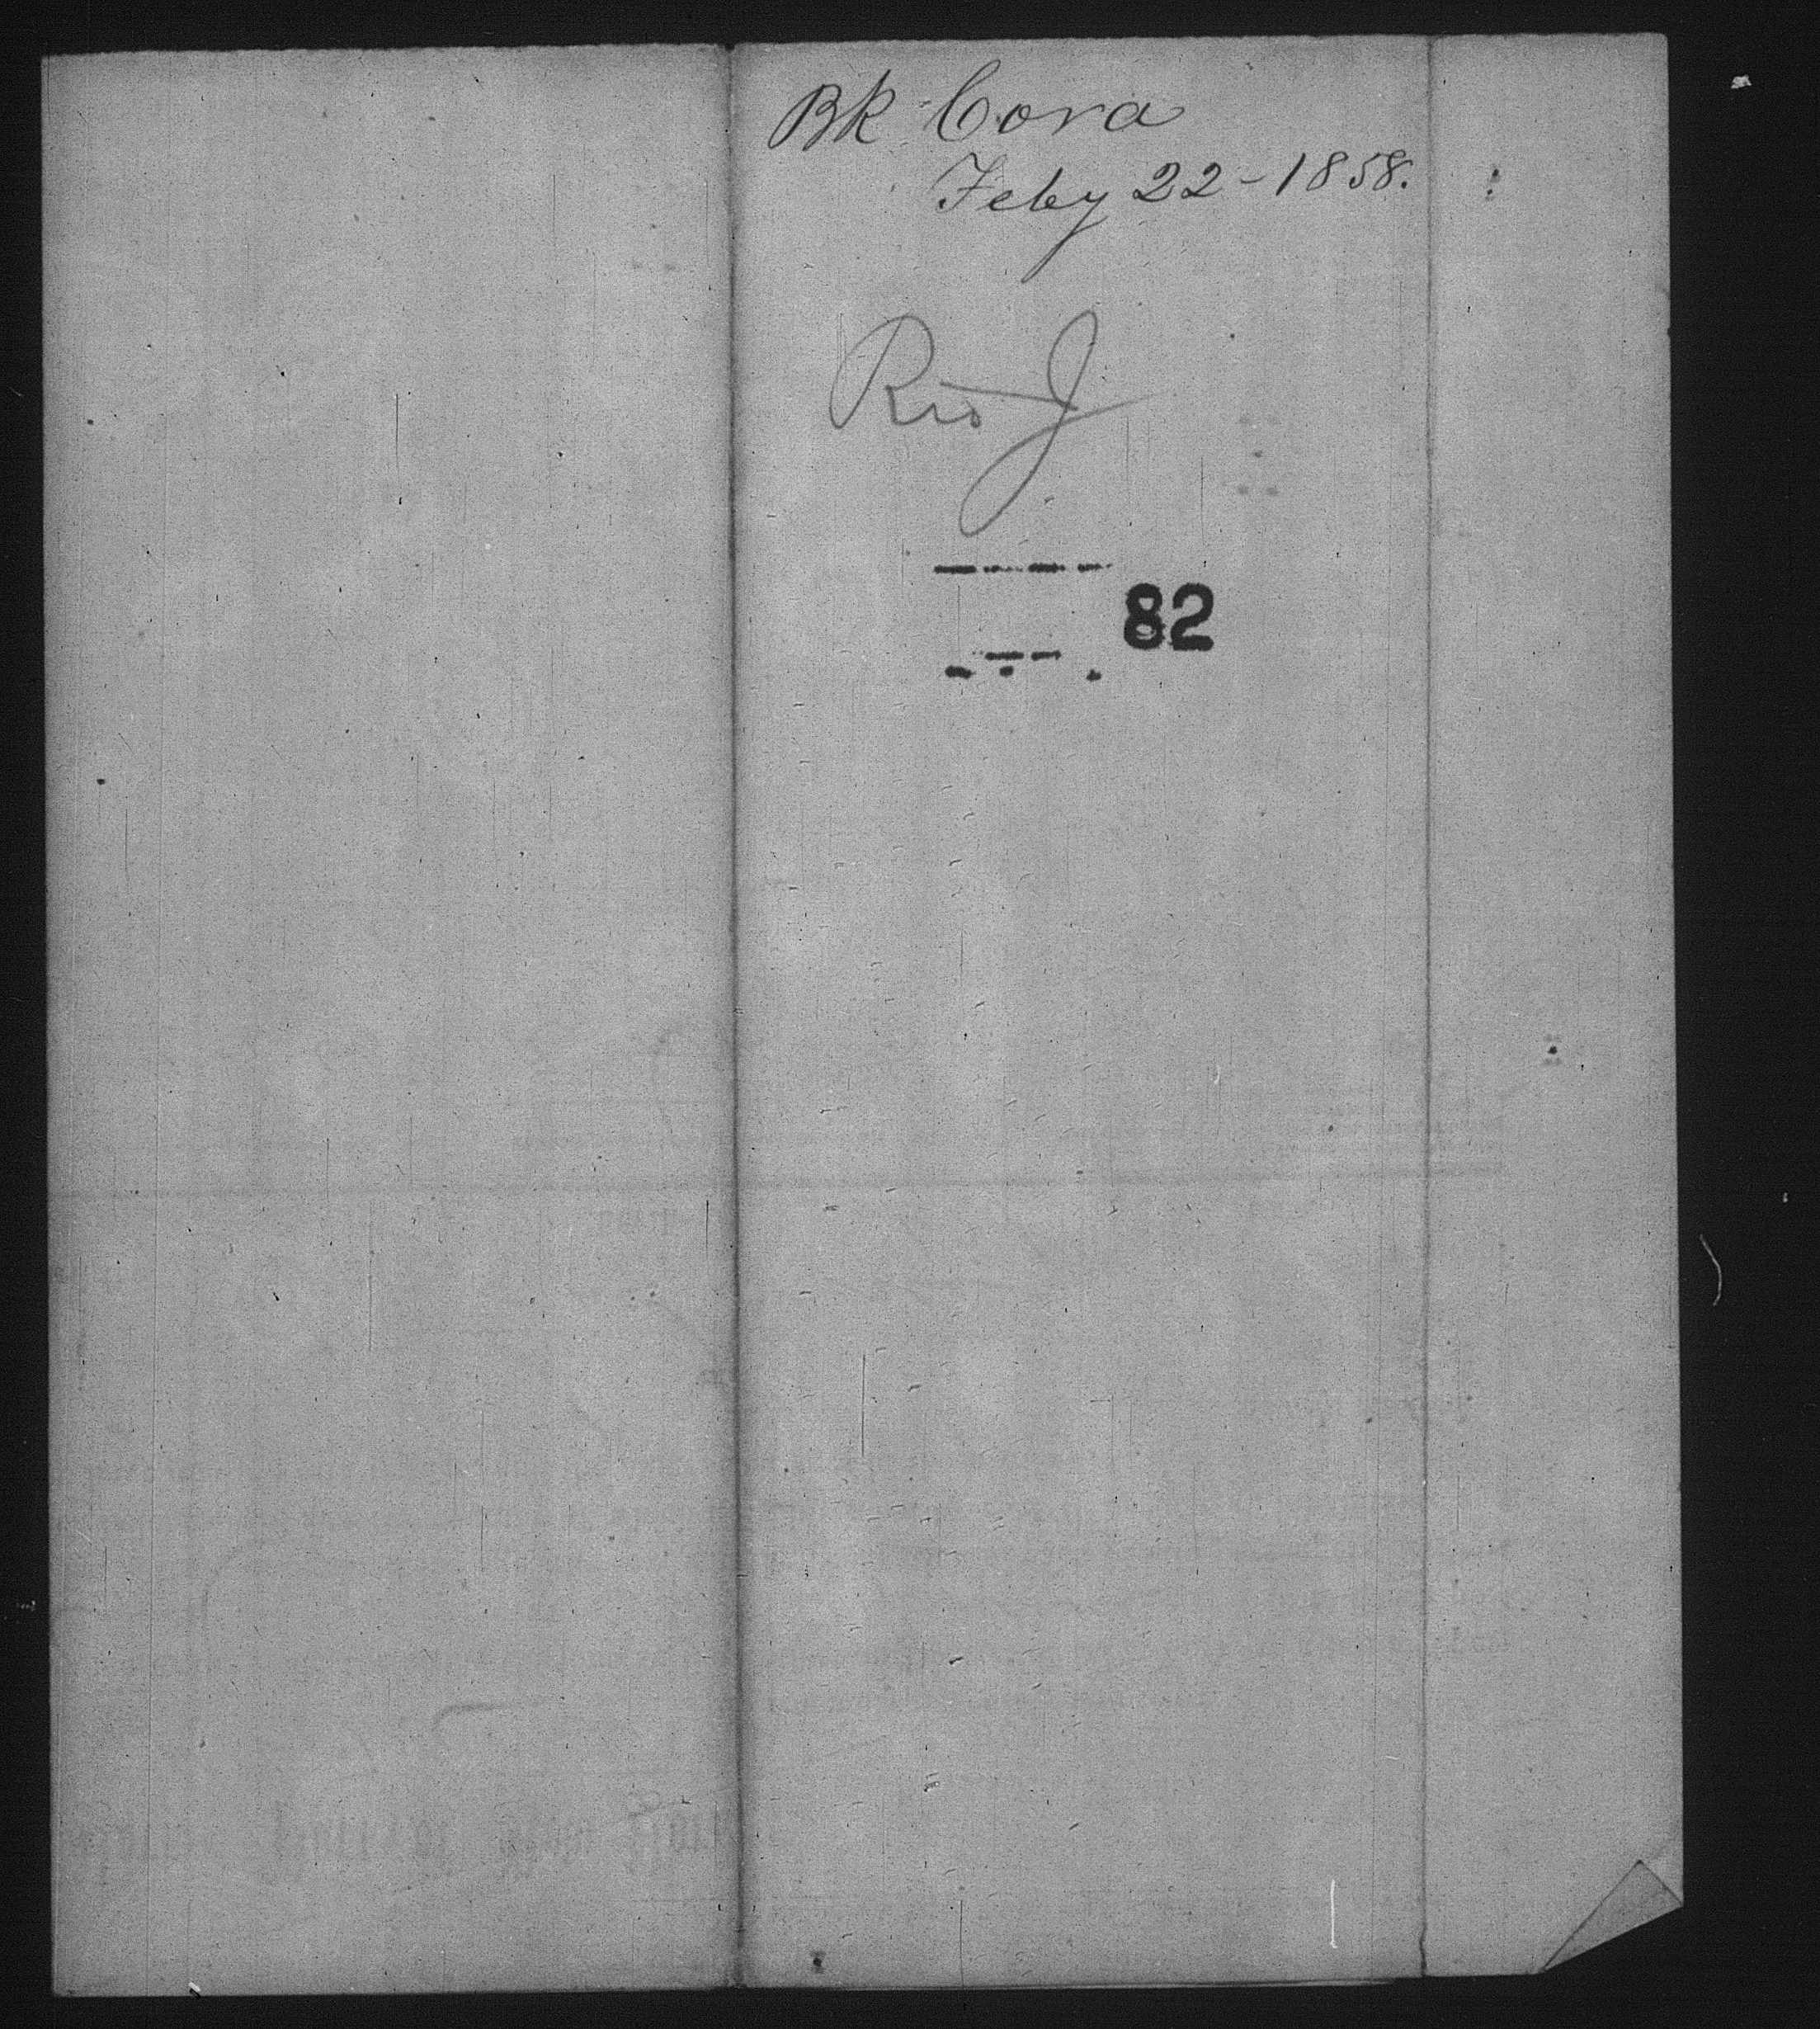 Bk Cora
Feby 22 - 1858.
Rio J
82